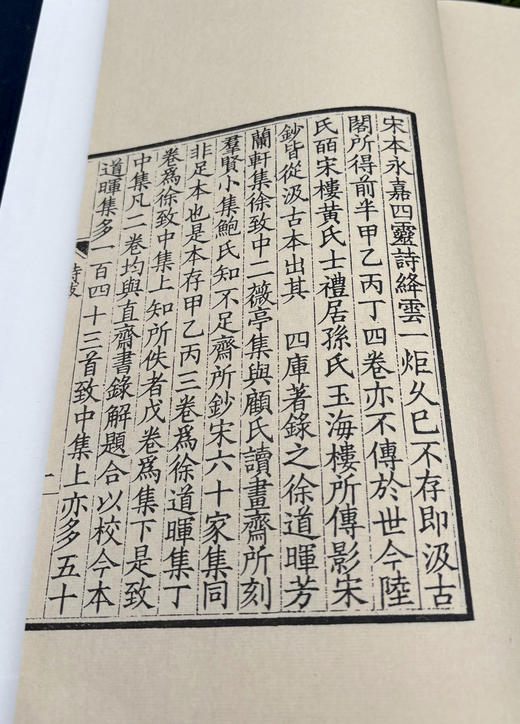 宋本永嘉四靈詩絳雲一炬久已不存即汲古
閣所得前半甲乙丙丁四卷亦不傳於世今陸
氏皕宋樓黃氏士禮居孫氏玉海樓所傳影宋
鈔皆從汲古本出其 四庫著錄之徐道暉芳
蘭軒集徐致中二薇亭集與顧氏讀畫齋所刻
羣賢小集鮑氏知不足齋所鈔宋六十家集同
非足本也是本存甲乙丙三卷爲徐道暉集丁
卷爲徐致中集上知所佚者戊卷爲集下是致
中集凡二卷均與直齋書錄解題合以校今本
道暉集多一百四十三首致中集上亦多五十
詩跋
二